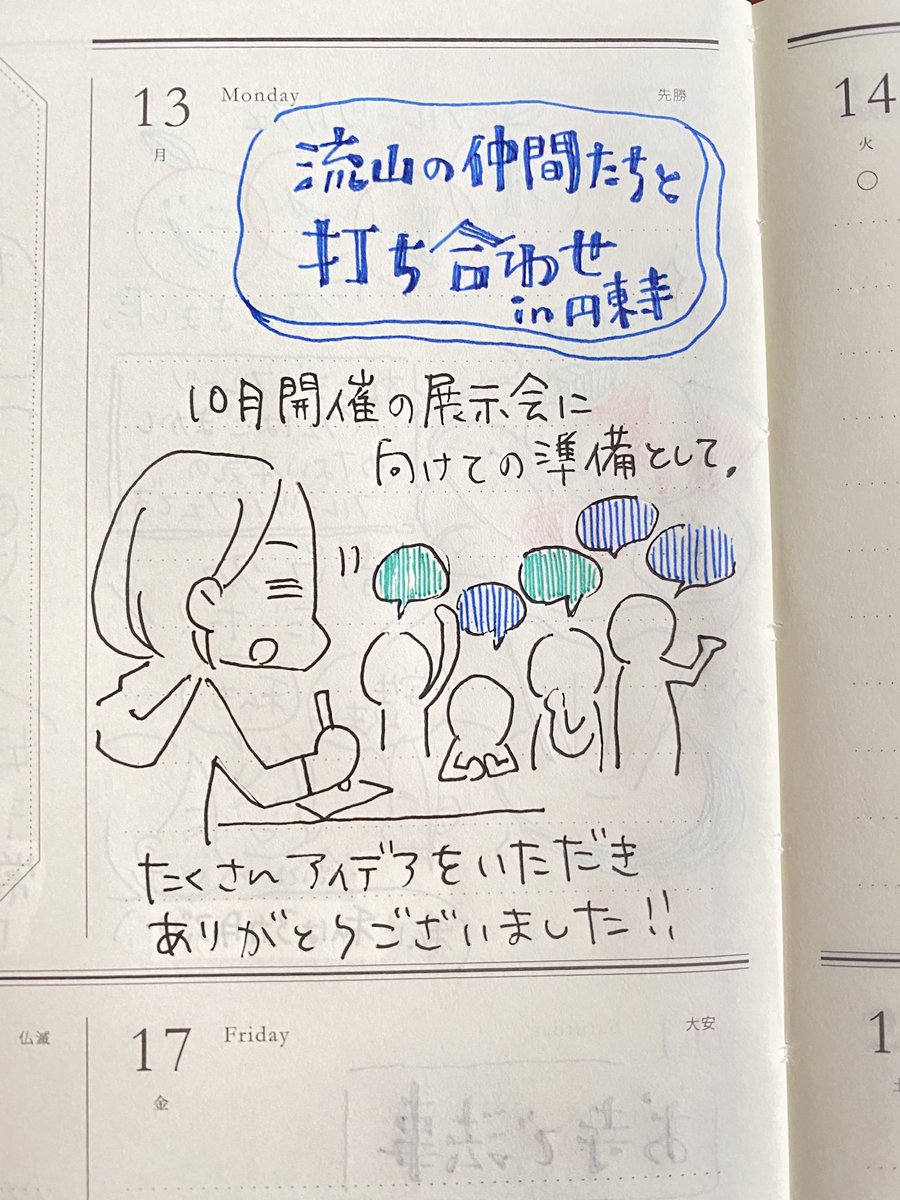 13 Monday 先勝
月
流山の仲間たちと
打ち合わせ
in 円東寺
10月開催の展示会に
向けての準備として。
たくさんアイデアをいただき
ありがとうございました!!
仏滅
17 Friday 大安
金
14
火